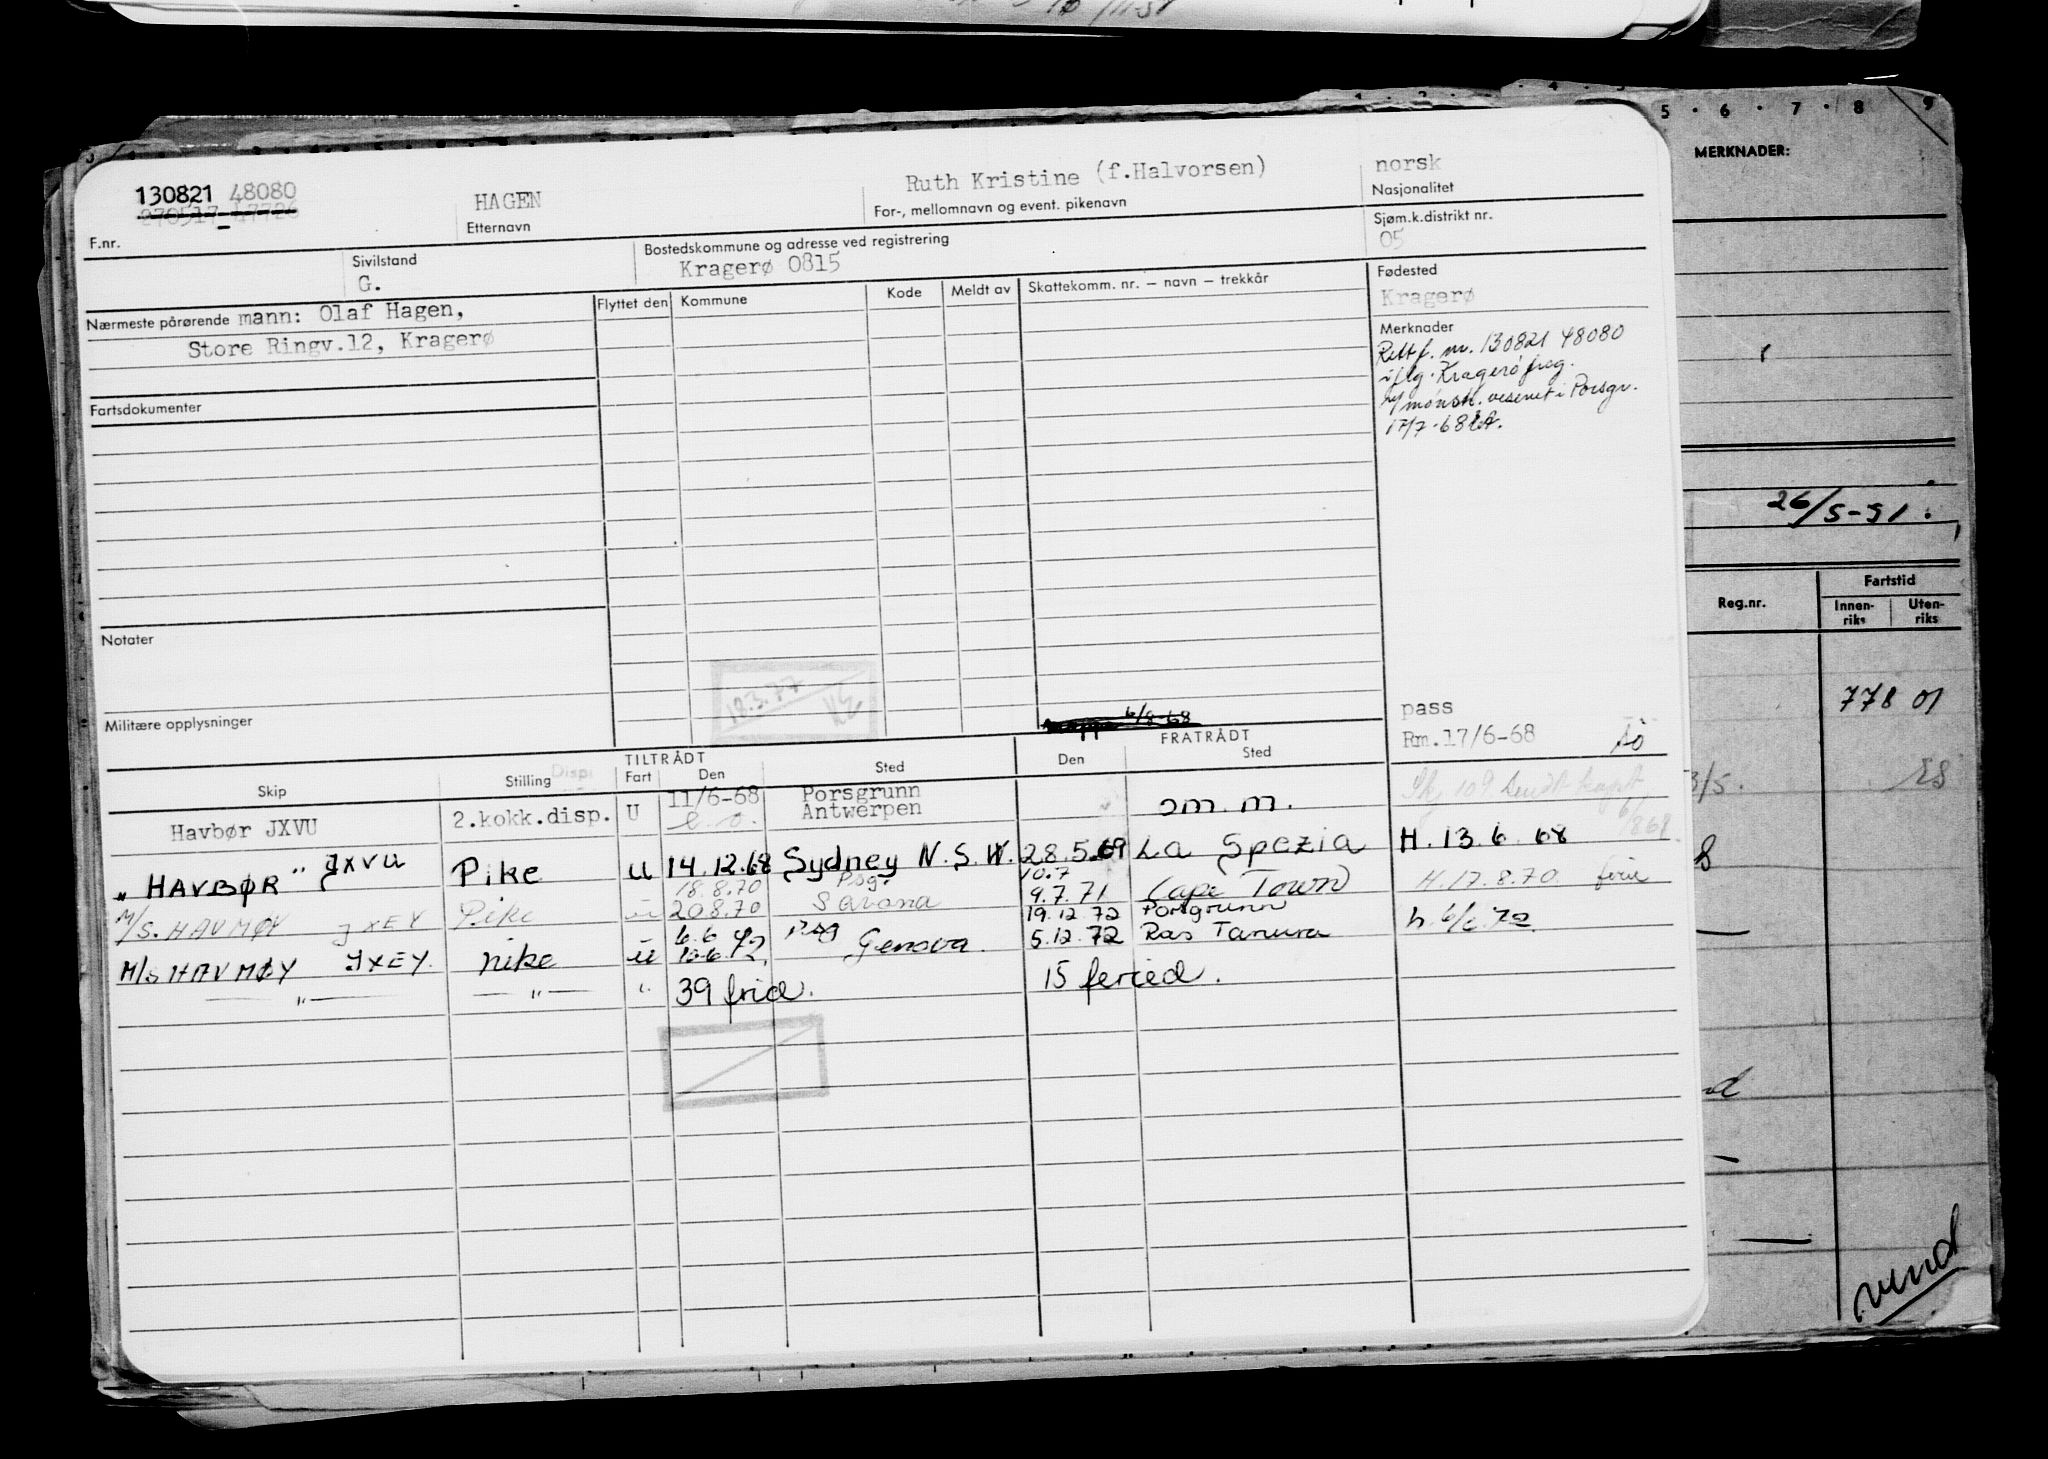 5 · 6 · 7 · 8 9
MERKNADER:
130821 48080
270517-47726
F.nr.
HAGEN
Etternavn
Ruth Kristine (f.Halvorsen)
For-, mellomnavn og event. pikenavn
norsk
Nasjonalitet
Sivilstand
G.
Bostedskommune og adresse ved registrering
Kragerø 0815
Sjøm.k.distrikt nr.
05
Nærmeste pårørende mann: Olaf Hagen,
Store Ringv.12, Kragerø
Flyttet den Kommune Kode Meldt av Skattekomm. nr. – navn – trekkår
Fødested
Kragerø
Merknader
Rett f. nr. 130821 48080
iflg. Kragerø freg.
v/mønstr. vesenet i Porsgr.
17/7-68
Fartsdokumenter
Notater
Militære opplysninger
18.3.77
6/8-68
pass
Rm.17/6-68
26/5-51.
Reg.nr.
Fartstid
Innen-riks Uten-riks
778 01
TILTRÅDT FRATRÅDT
Skip Stilling Disp. Fart Den Sted Den Sted
Havbør JXVU 2.kokk.disp. U 11/6-68 Porsgrunn
Antwerpen om.m.
"HAVBØR" JXVU Pike u 14.12.68 Sydney N.S.W. 28.5.69 La Spezia H. 13.6.68
18.8.70 Psg. 10.7
M/S. HAVMØY JXEY Pike u 20.8.70 Savona 9.7.71 Cape Town H. 17.8.70 ferie
6.6.72 Psg 19.12.72 Porsgrunn
M/S HAVMØY JXEY. Pike u 10.6.72. Genova. 5.12.72 Ras Tanura h. 6/6.72
— " — — " — " 39 frid. 15 feried.
vend